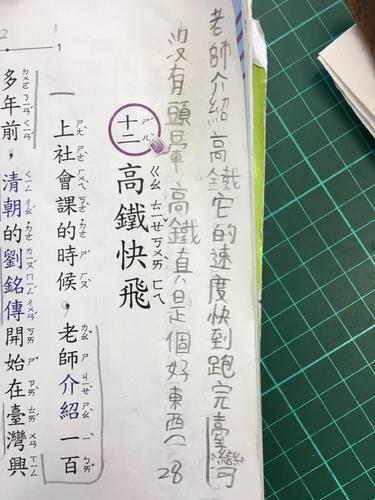 老師介紹高鐵它的速度快到跑完臺灣
沒有頭暈高鐵真是個好東西
28
十二
高鐵快飛
1
上社會課的時候，老師介紹一百
2
多年前，清朝的劉銘傳開始在臺灣興